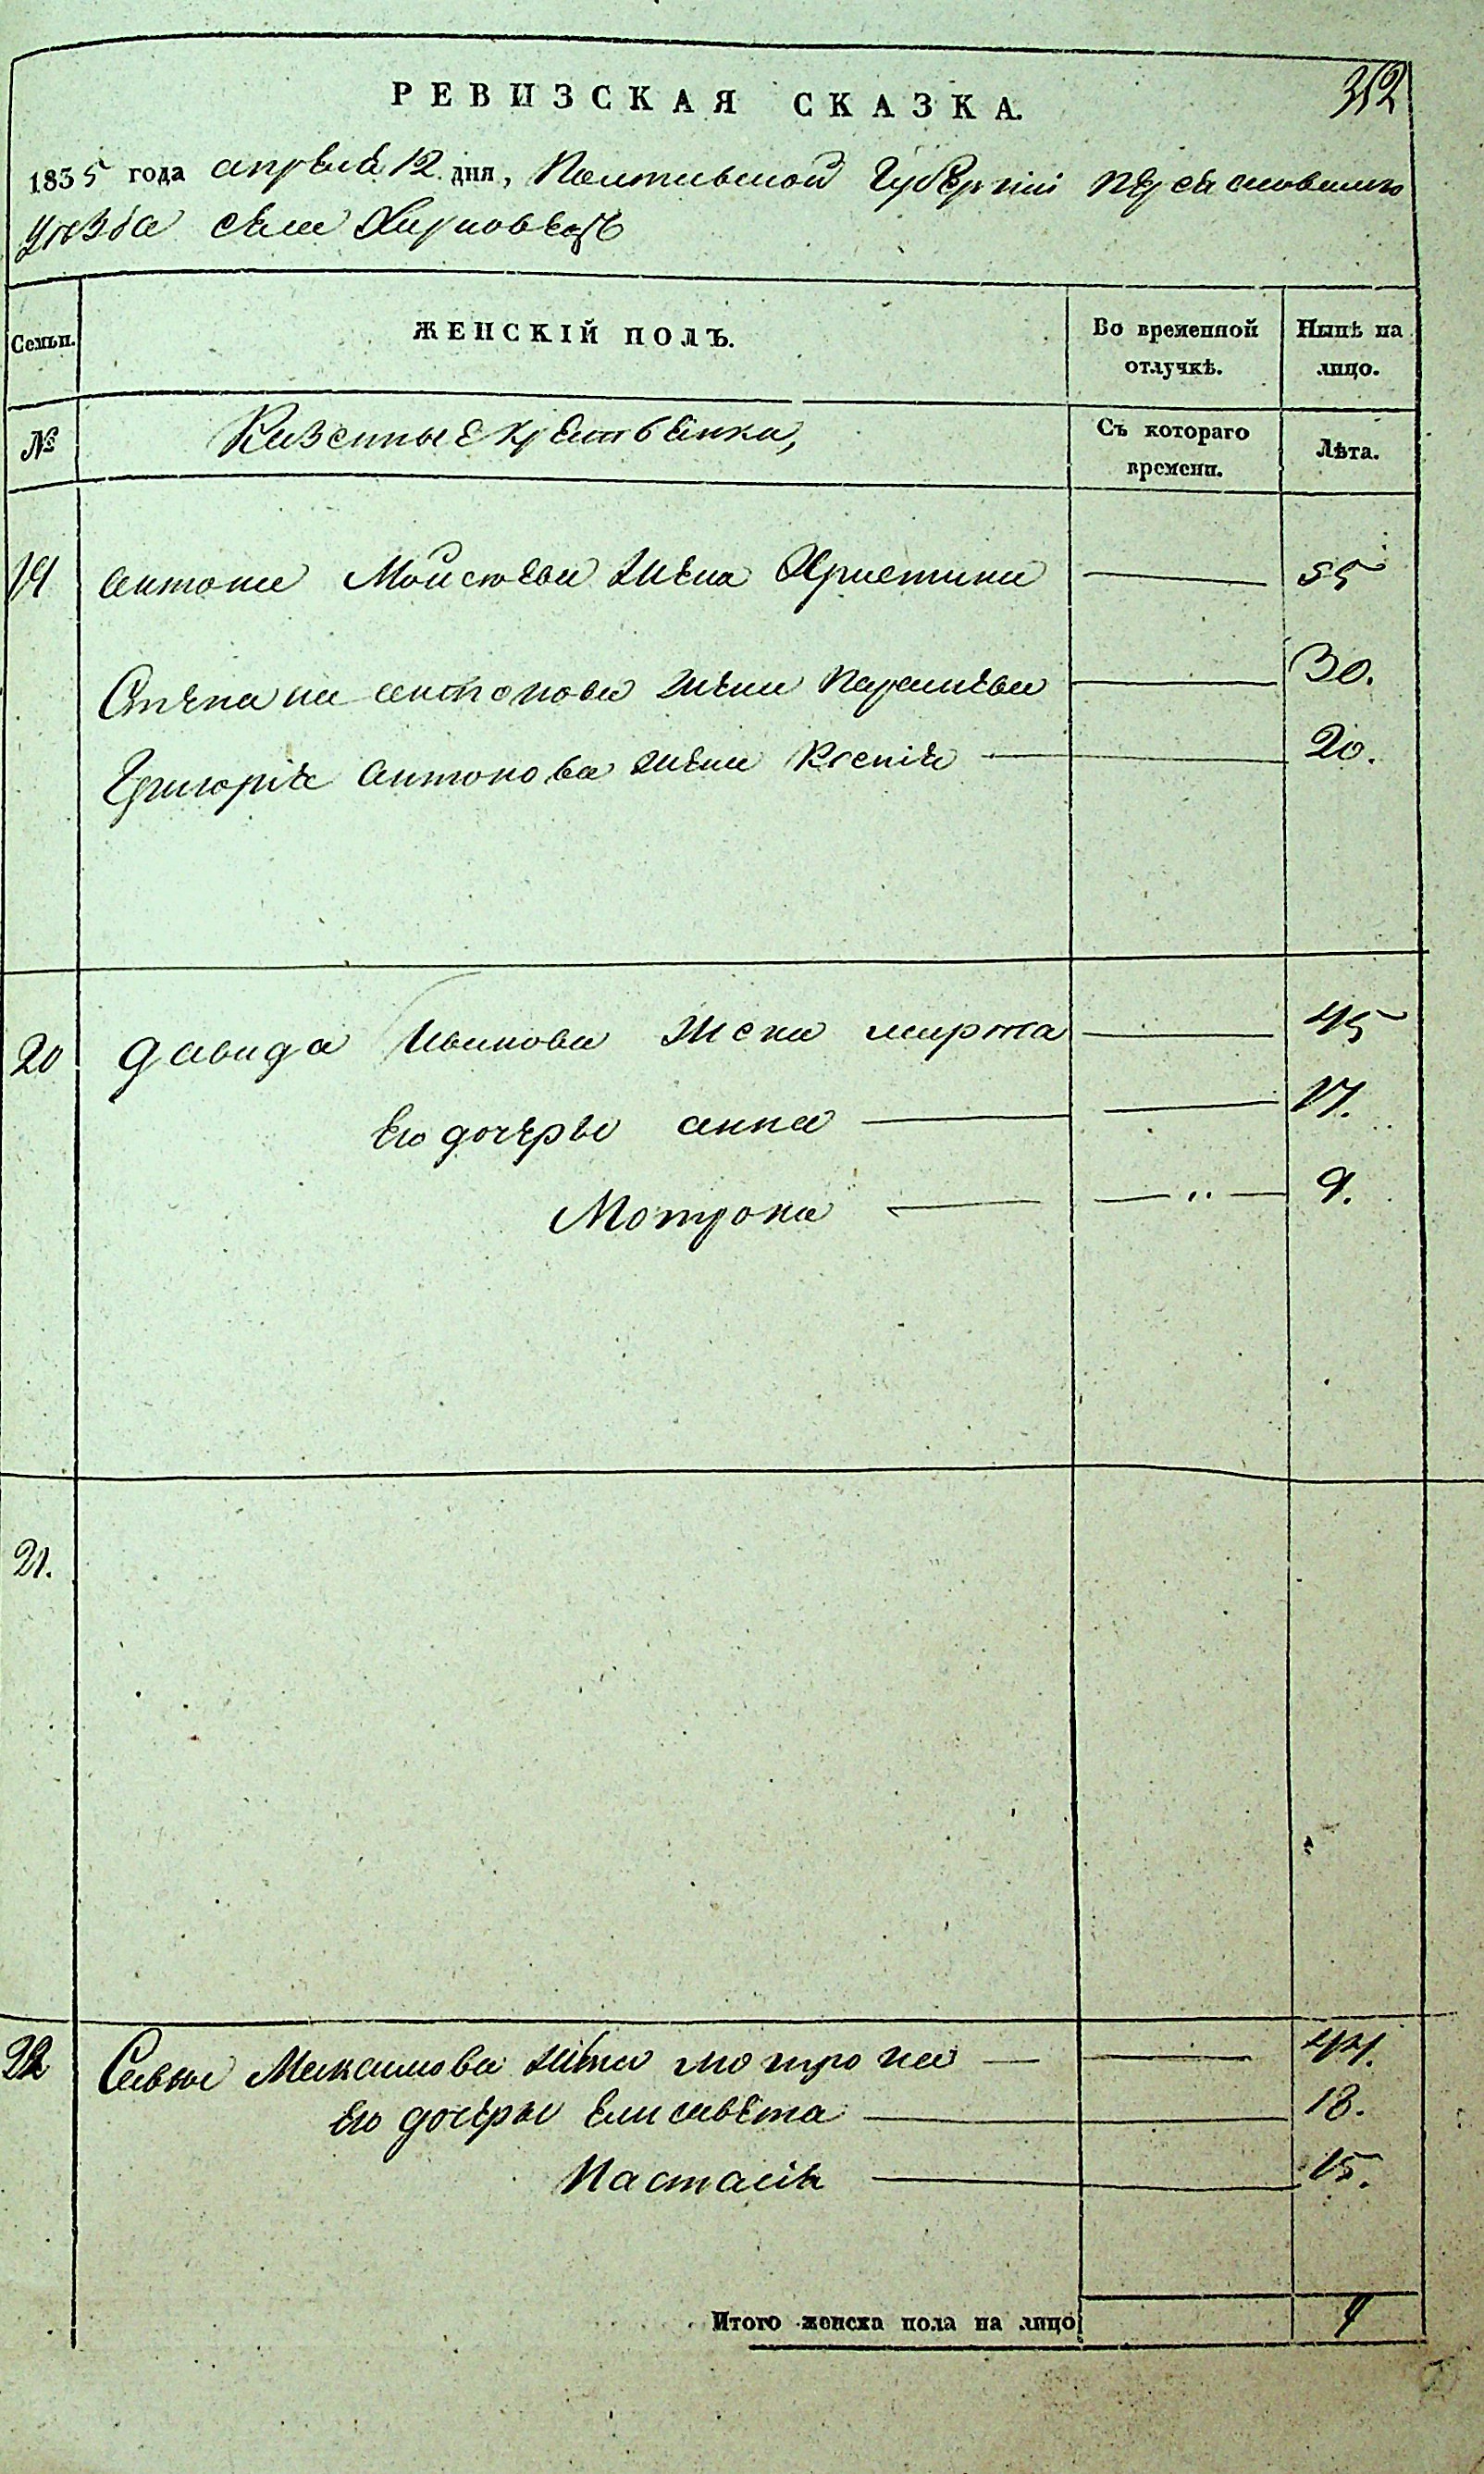 352
РЕВИЗСКАЯ СКАЗКА.
1835 года апреля 12 дня, Полтавской Губернiи Переяславскаго
уезда села
Семьи.
ЖЕНСКIЙ ПОЛЪ.
Во временной отлучкѣ.
Нынѣ на лицо.
№
Казенные крестьянки,
Съ котораго времени.
Лѣта.
19 Антона Моисеева жена Христина 55
Степана Антонова жена Параскева 30.
Григорiя Антонова жена Ксенiя 20.
20 Давида Иванова жена марта 45
Его дочеры анна 17.
Мотрона 9.
21.
22 Савы Максимова жена мотрона 44.
Его дочеры Елисавета 18.
Настасiя 15.
Итого женска пола на лицо 9